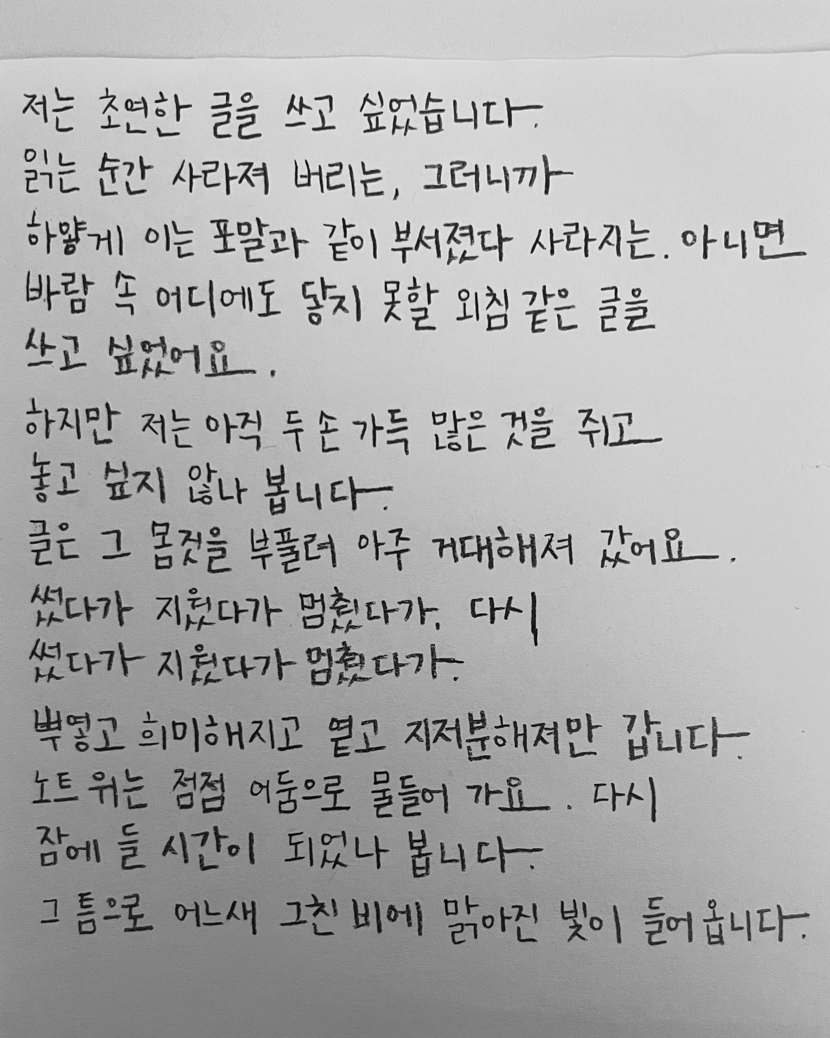 저는 초연한 글을 쓰고 싶었습니다.
읽는 순간 사라져 버리는, 그러니까
하얗게 이는 포말과 같이 부서졌다 사라지는. 아니면
바람 속 어디에도 닿지 못할 외침 같은 글을
쓰고 싶었어요.
하지만 저는 아직 두 손 가득 많은 것을 쥐고
놓고 싶지 않나 봅니다.
글은 그 몸짓을 부풀려 아주 거대해져 갔어요.
썼다가 지웠다가 멈췄다가. 다시
썼다가 지웠다가 멈췄다가.
뿌옇고 희미해지고 옅고 지저분해져만 갑니다.
노트 위는 점점 어둠으로 물들어 가요. 다시
잠에 들 시간이 되었나 봅니다.
그 틈으로 어느새 그친 비에 맑아진 빛이 들어옵니다.